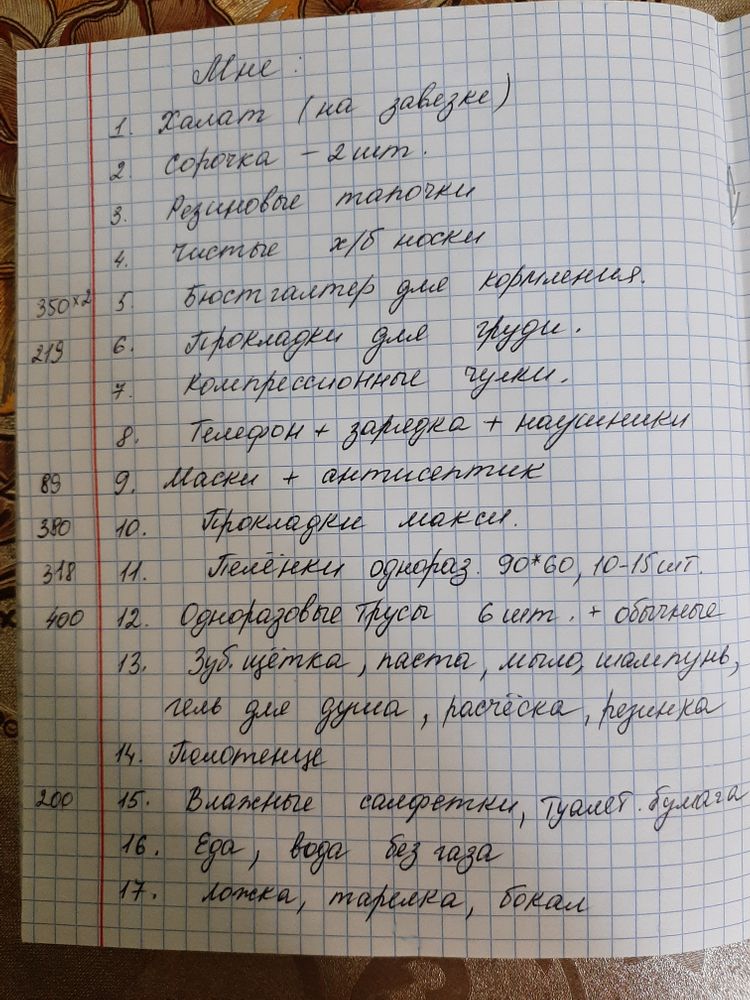 Мне:
1. Халат (на завезке)
2. Сорочка – 2 шт.
3. Резиновые тапочки
4. Чистые х/б носки
350×2 5. Бюстгалтер для кормления.
219 6. Прокладки для груди.
7. Компрессионные чулки.
8. Телефон + зарядка + наушники
89 9. Маски + антисептик
380 10. Прокладки макси.
318 11. Пелёнки однораз. 90*60, 10-15 шт.
400 12. Одноразовые трусы 6 шт. + обычные
13. Зуб. щётка, паста, мыло, шампунь,
гель для душа, расчёска, резинка
14. Полотенце
200 15. Влажные салфетки, туалет. бумага
16. Еда, вода без газа
17. Ложка, тарелка, бокал